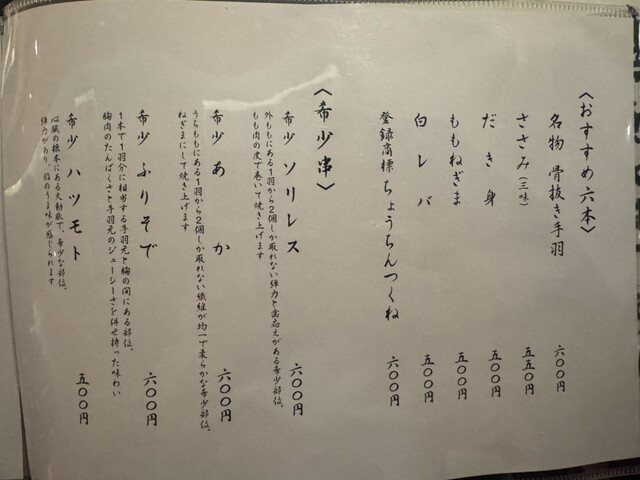 〈おすすめ六本〉
名物 骨抜き手羽 六〇〇円
ささみ(三味) 五五〇円
だき身 五〇〇円
ももねぎま 五〇〇円
白レバ 五〇〇円
登録商標 ちょうちんつくね 六〇〇円
〈希少串〉
希少 ソリレス 六〇〇円
外ももにある1羽から2個しか取れない弾力と歯応えがある希少部位、
もも肉の皮で巻いて焼き上げます
希少 あか 六〇〇円
うちももにある1羽から2個しか取れない繊維が均一で柔らかな希少部位、
ねぎまにして焼き上げます
希少 ふりそで 六〇〇円
1本で1羽分に相当する手羽元と胸の間にある部位、
胸肉のたんぱくさと手羽元のジューシーさを併せ持った味わい
希少 ハツモト 五〇〇円
心臓の根本にある大動脈で、希少な部位、
弾力があり、脂のうま味が感じられます